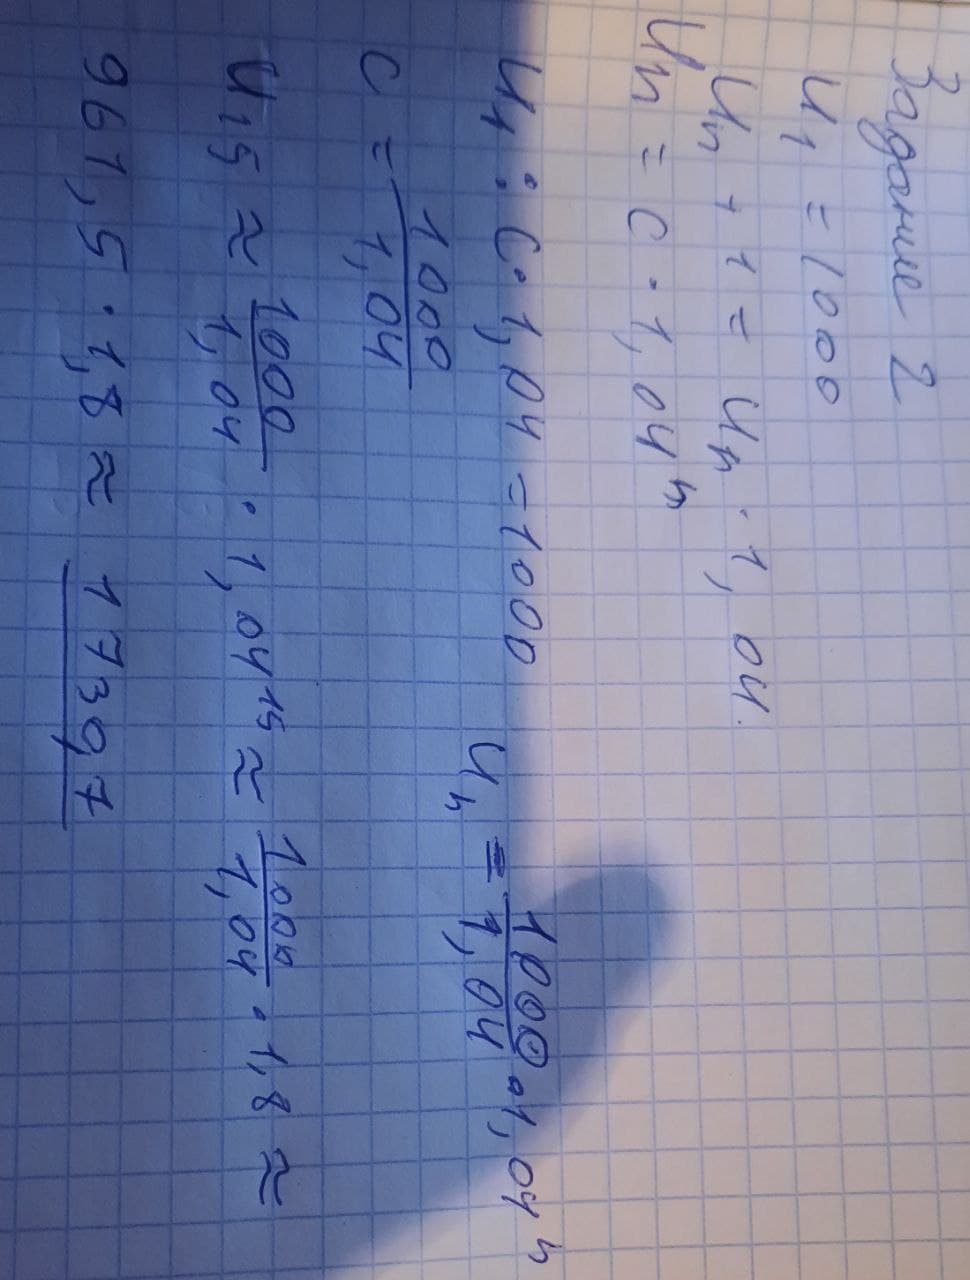 Задание 2
U₁ = 1000
Uₙ + 1 = Uₙ · 1,04.
Uₙ = C · 1,04ⁿ
U₁ : C · 1,04 = 1000
Uₙ = 1000/1,04 · 1,04ⁿ
C = 1000/1,04
U₁₅ ≈ 1000/1,04 · 1,04¹⁵ ≈ 1000/1,04 · 1,8 ≈
961,5 · 1,8 ≈ 17397